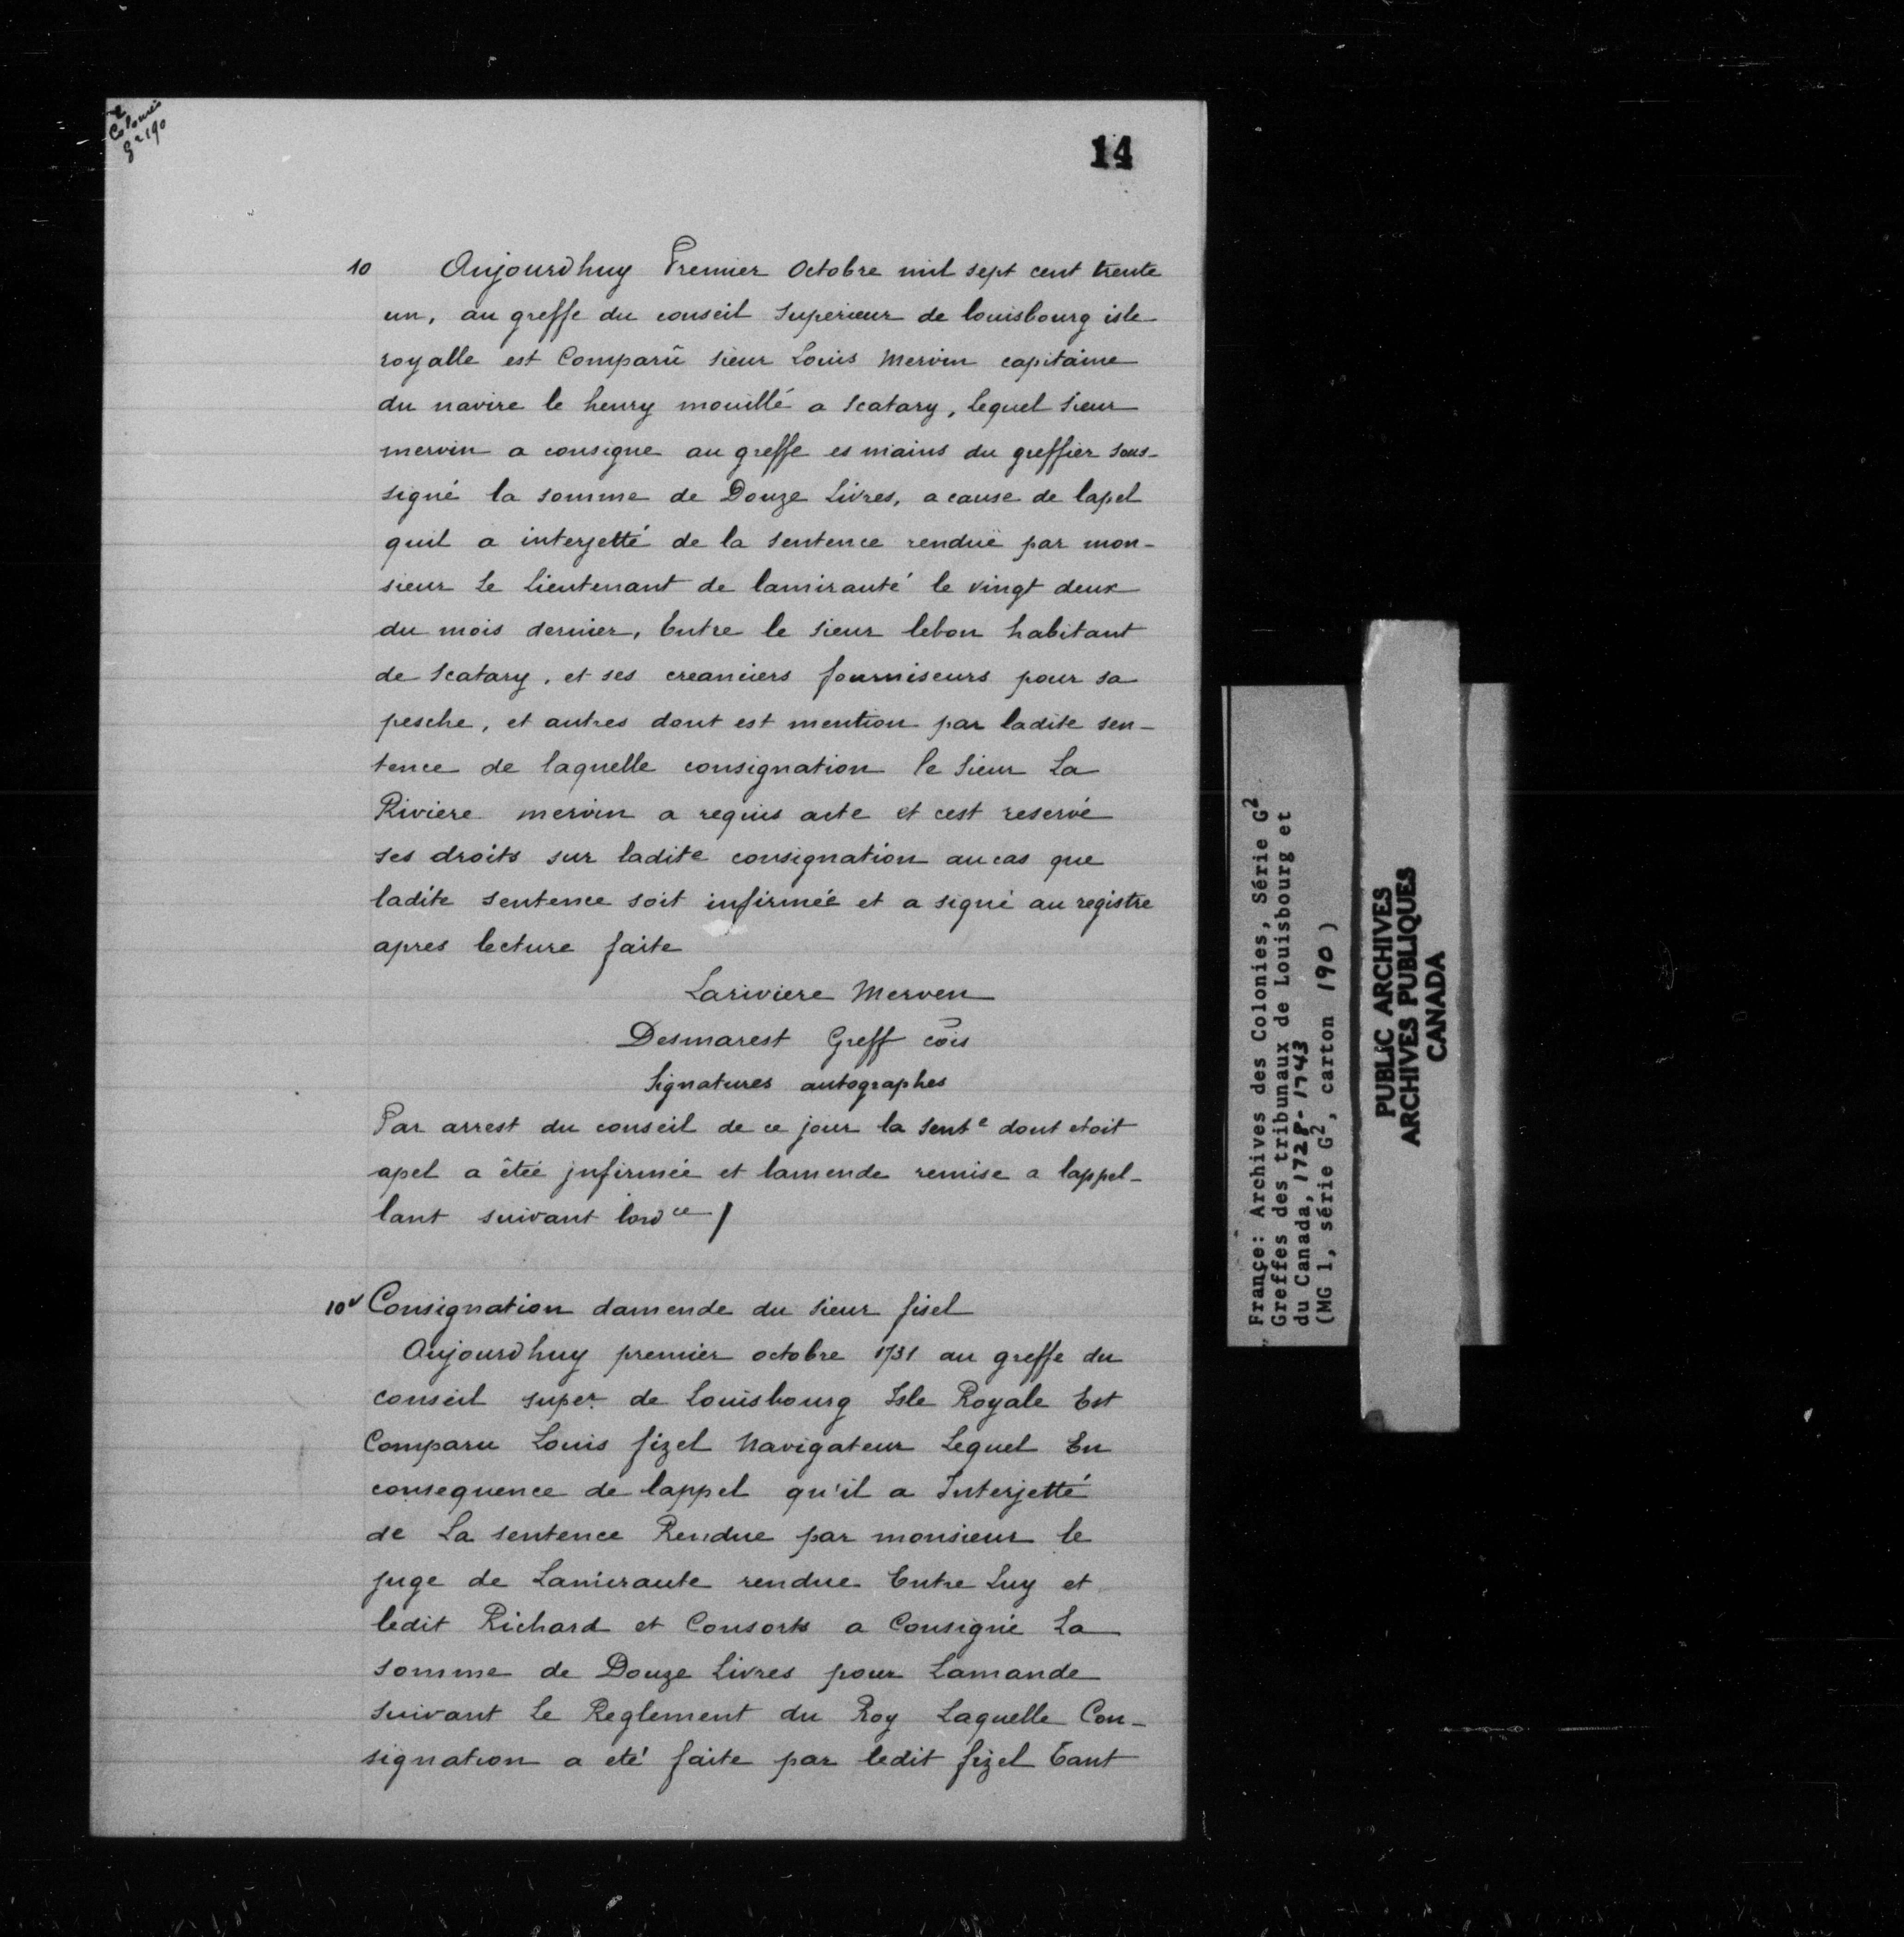 Colonies
G² 190
14
10 Aujourdhuy Premier Octobre mil sept cent trente
un, au greffe du conseil Superieur de louisbourg isle
royalle est Comparû sieur Louis Mervin capitaine
du navire le henry mouillé a Scatary, lequel Sieur
mervin a consigne au greffe es mains du greffier sous-
signé la somme de Douze Livres, a cause de lapel
quil a interjetté de la sentence rendue par mon-
sieur Le Lieutenant de lamirauté le vingt deux
du mois dernier, Entre le sieur lebon habitant
de Scatary, et ses creanciers fourniseurs pour sa
pesche, et autres dont est mention par ladite sen-
tence de laquelle consignation le Sieur La
Riviere mervin a requis acte et cest reservé
ses droits sur ladite consignation au cas que
ladite sentence soit infirmée et a signé au registre
apres lecture faite
Lariviere Merven
Desmarest Greff cōis
Signatures autographes
Par arrest du conseil de ce jour la Sentᵉ dont etoit
apel a êtée jnfirmée et lamende remise a lappel-
lant suivant lordᶜᵉ /
10ᵛ Consignation damende du Sieur fisel
Aujourdhuy premier octobre 1731 au greffe du
conseil super. de Louisbourg Isle Royale Est
Comparu Louis fizel Navigateur Lequel En
consequence de lappel qu'il a Interjetté
de La sentence Rendue par monsieur le
juge de Lamiraute rendue Entre Luy et
ledit Richard et Consorts a Consigné La
somme de Douze Livres pour Lamande
Suivant Le Reglement du Roy Laquelle Con-
signation a eté faite par ledit fizel Tant
France: Archives des Colonies, Série G²
Greffes des tribunaux de Louisbourg et
du Canada, 1728-1743
(MG 1, série G², carton 190 )
PUBLIC ARCHIVES
ARCHIVES PUBLIQUES
CANADA